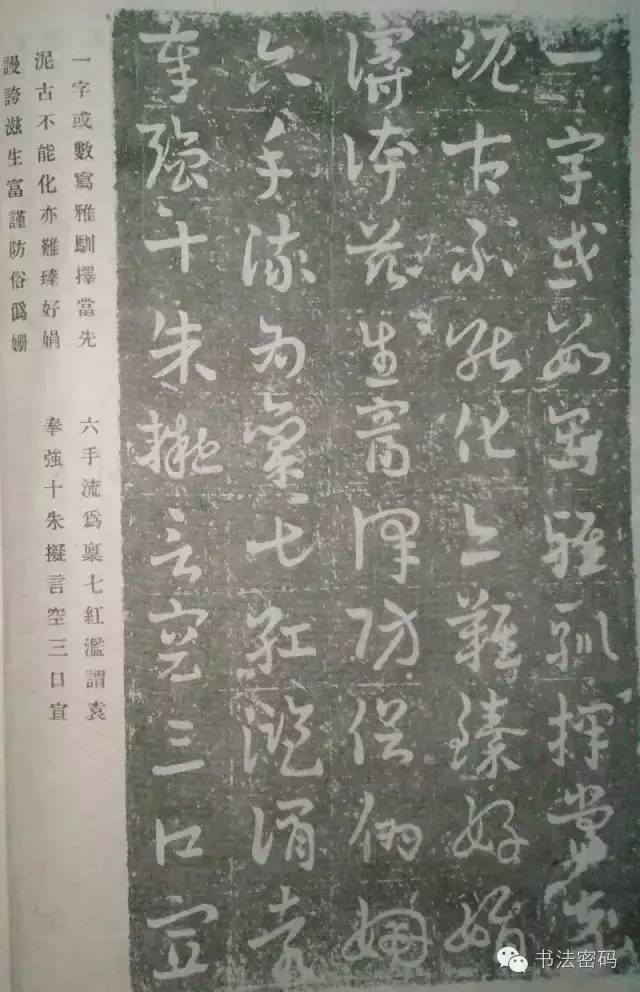 一字或數寫雅馴擇當先
泥古不能化亦難臻好娟
謾誇滋生富謹防俗僞姍
六手流爲稟七紅濫謂袁
奉強十朱擬言空三口宣
一字或數寫雅馴擇當先
泥古不能化亦難臻好娟
謾誇滋生富謹防俗僞姍
六手流爲稟七紅濫謂袁
奉強十朱擬言空三口宣
书法密码